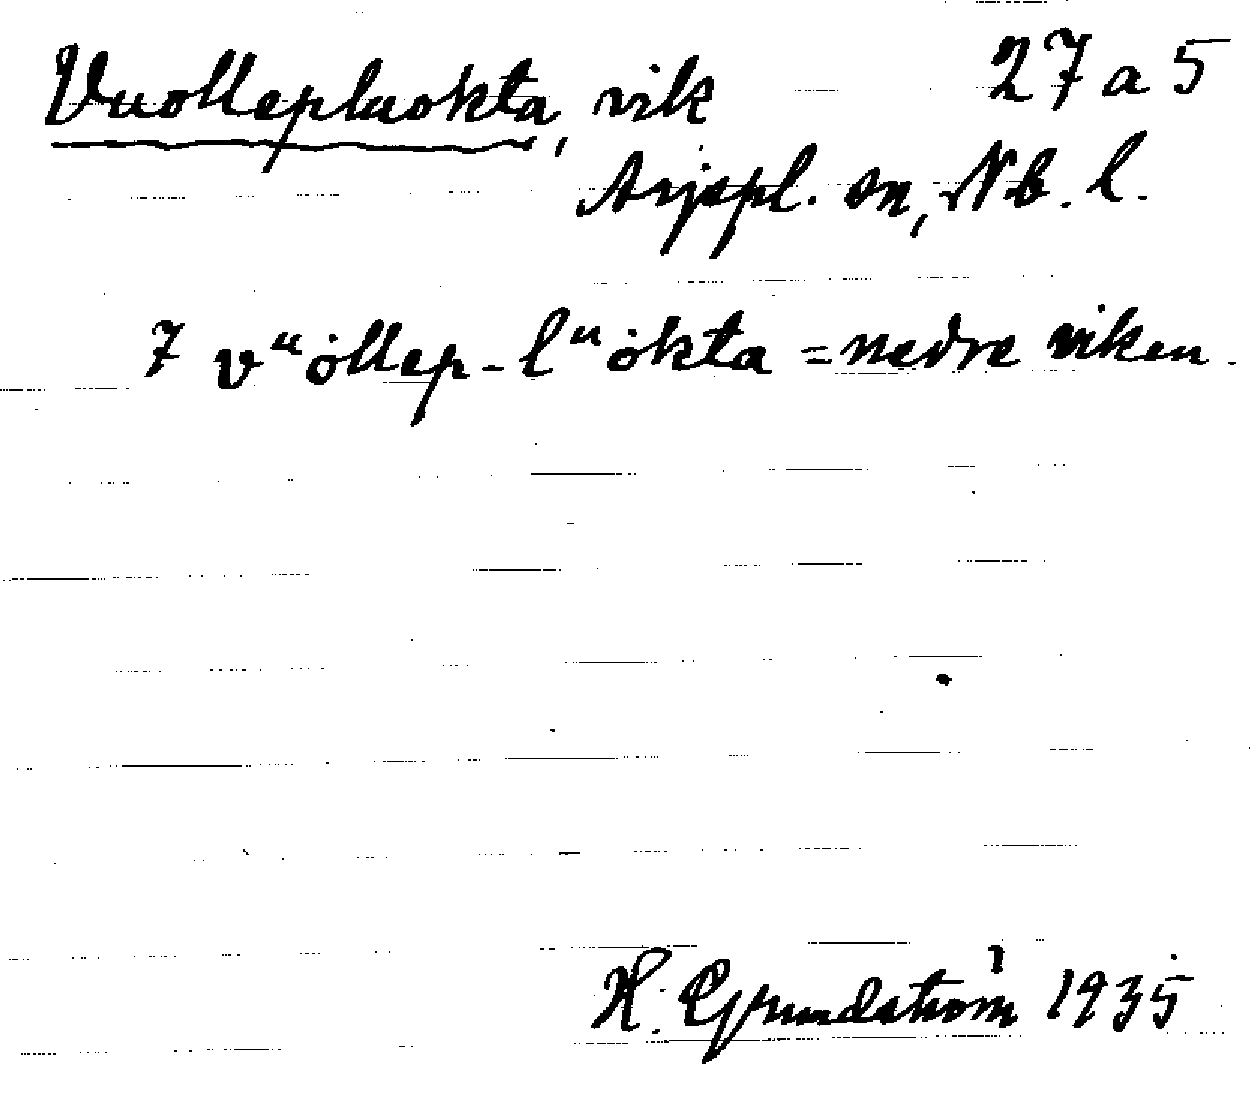 Vuollepluokta, vik 27 a 5
Arjepl. sn, Nb. l.
7 vᵘȯllep-lᵘȯkta = nedre viken.
H. Grundström 1935